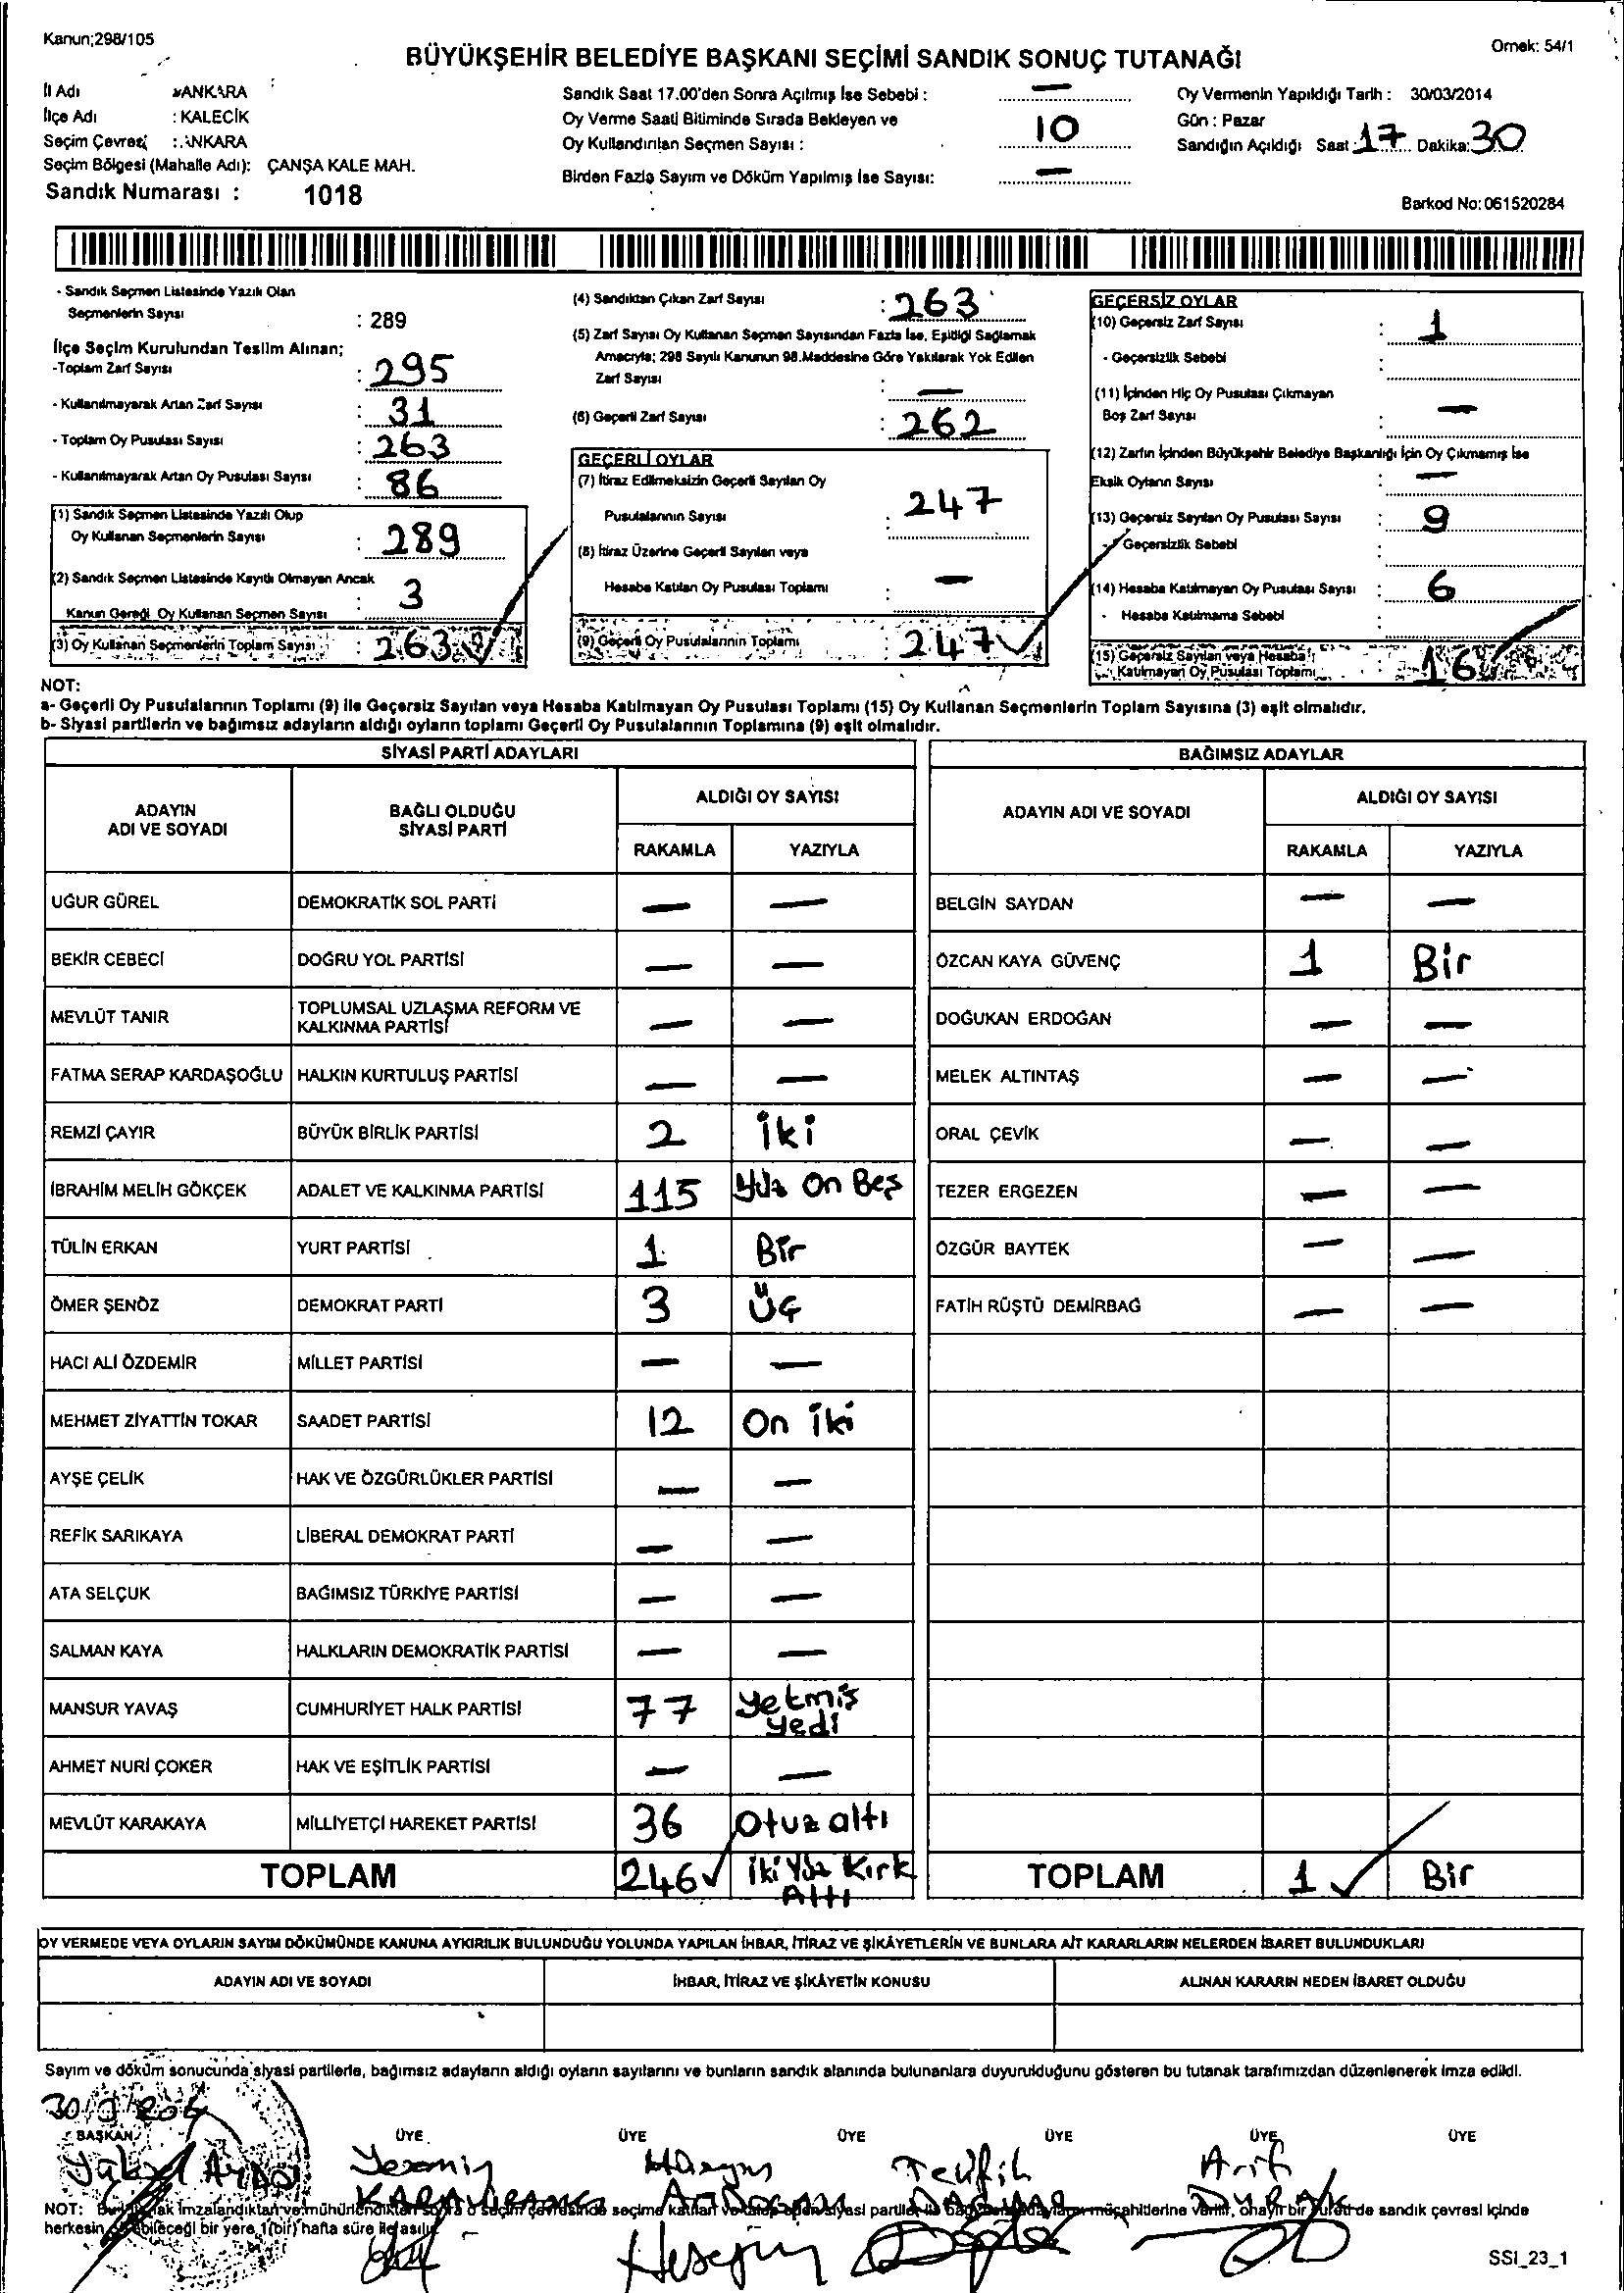 Kanun;298/105
Örnek: 54/1
BÜYÜKŞEHİR BELEDİYE BAŞKANI SEÇİMİ SANDIK SONUÇ TUTANAĞI
İl Adı : ANKARA
İlçe Adı : KALECİK
Seçim Çevresi : ANKARA
Seçim Bölgesi (Mahalle Adı): ÇANŞA KALE MAH.
Sandık Numarası : 1018
Sandık Saat 17.00'den Sonra Açılmış İse Sebebi : —
Oy Verme Saati Bitiminde Sırada Bekleyen ve
Oy Kullandırılan Seçmen Sayısı : 10
Birden Fazla Sayım ve Döküm Yapılmış İse Sayısı: —
Oy Vermenin Yapıldığı Tarih : 30/03/2014
Gün : Pazar
Sandığın Açıldığı Saat : 17 Dakika: 30
Barkod No: 061520284
- Sandık Seçmen Listesinde Yazılı Olan
Seçmenlerin Sayısı : 289
İlçe Seçim Kurulundan Teslim Alınan;
-Toplam Zarf Sayısı : 295
- Kullanılmayarak Artan Zarf Sayısı : 31
- Toplam Oy Pusulası Sayısı : 263
- Kullanılmayarak Artan Oy Pusulası Sayısı : 86
(1) Sandık Seçmen Listesinde Yazılı Olup
Oy Kullanan Seçmenlerin Sayısı : 289
(2) Sandık Seçmen Listesinde Kayıtlı Olmayan Ancak
Kanun Gereği Oy Kullanan Seçmen Sayısı : 3
(3) Oy Kullanan Seçmenlerin Toplam Sayısı : 263
(4) Sandıktan Çıkan Zarf Sayısı : 263
(5) Zarf Sayısı Oy Kullanan Seçmen Sayısından Fazla İse, Eşitliği Sağlamak
Amacıyla; 298 Sayılı Kanunun 98.Maddesine Göre Yakılarak Yok Edilen
Zarf Sayısı : —
(6) Geçerli Zarf Sayısı : 262
GEÇERLİ OYLAR
(7) İtiraz Edilmeksizin Geçerli Sayılan Oy
Pusulalarının Sayısı : 247
(8) İtiraz Üzerine Geçerli Sayılan veya
Hesaba Katılan Oy Pusulası Toplamı : —
(9) Geçerli Oy Pusulalarının Toplamı : 247
GEÇERSİZ OYLAR
(10) Geçersiz Zarf Sayısı : 1
- Geçersizlik Sebebi :
(11) İçinden Hiç Oy Pusulası Çıkmayan
Boş Zarf Sayısı : —
(12) Zarfın İçinden Büyükşehir Belediye Başkanlığı İçin Oy Çıkmamış İse
Eksik Oyların Sayısı : —
(13) Geçersiz Sayılan Oy Pusulası Sayısı : 9
- Geçersizlik Sebebi :
(14) Hesaba Katılmayan Oy Pusulası Sayısı : 6
- Hesaba Katılmama Sebebi :
(15) Geçersiz Sayılan veya Hesaba
Katılmayan Oy Pusulası Toplamı : 16
NOT:
a- Geçerli Oy Pusulalarının Toplamı (9) ile Geçersiz Sayılan veya Hesaba Katılmayan Oy Pusulası Toplamı (15) Oy Kullanan Seçmenlerin Toplam Sayısına (3) eşit olmalıdır.
b- Siyasi partilerin ve bağımsız adayların aldığı oyların toplamı Geçerli Oy Pusulalarının Toplamına (9) eşit olmalıdır.
SİYASİ PARTİ ADAYLARI
ADAYIN ADI VE SOYADI BAĞLI OLDUĞU SİYASİ PARTİ ALDIĞI OY SAYISI
RAKAMLA YAZIYLA
UĞUR GÜREL DEMOKRATİK SOL PARTİ — —
BEKİR CEBECİ DOĞRU YOL PARTİSİ — —
MEVLÜT TANIR TOPLUMSAL UZLAŞMA REFORM VE KALKINMA PARTİSİ — —
FATMA SERAP KARDAŞOĞLU HALKIN KURTULUŞ PARTİSİ — —
REMZİ ÇAYIR BÜYÜK BİRLİK PARTİSİ 2 İki
İBRAHİM MELİH GÖKÇEK ADALET VE KALKINMA PARTİSİ 115 Yüz On Beş
TÜLİN ERKAN YURT PARTİSİ 1 Bir
ÖMER ŞENÖZ DEMOKRAT PARTİ 3 Üç
HACI ALİ ÖZDEMİR MİLLET PARTİSİ — —
MEHMET ZİYATTİN TOKAR SAADET PARTİSİ 12 On iki
AYŞE ÇELİK HAK VE ÖZGÜRLÜKLER PARTİSİ — —
REFİK SARIKAYA LİBERAL DEMOKRAT PARTİ — —
ATA SELÇUK BAĞIMSIZ TÜRKİYE PARTİSİ — —
SALMAN KAYA HALKLARIN DEMOKRATİK PARTİSİ — —
MANSUR YAVAŞ CUMHURİYET HALK PARTİSİ 77 Yetmiş yedi
AHMET NURİ ÇOKER HAK VE EŞİTLİK PARTİSİ — —
MEVLÜT KARAKAYA MİLLİYETÇİ HAREKET PARTİSİ 36 Otuz altı
TOPLAM 246 İki Yüz Kırk Altı
BAĞIMSIZ ADAYLAR
ADAYIN ADI VE SOYADI ALDIĞI OY SAYISI
RAKAMLA YAZIYLA
BELGİN SAYDAN — —
ÖZCAN KAYA GÜVENÇ 1 Bir
DOĞUKAN ERDOĞAN — —
MELEK ALTINTAŞ — —
ORAL ÇEVİK — —
TEZER ERGEZEN — —
ÖZGÜR BAYTEK — —
FATİH RÜŞTÜ DEMİRBAĞ — —
TOPLAM 1 Bir
OY VERMEDE VEYA OYLARIN SAYIM DÖKÜMÜNDE KANUNA AYKIRILIK BULUNDUĞU YOLUNDA YAPILAN İHBAR, İTİRAZ VE ŞİKÂYETLERİN VE BUNLARA AİT KARARLARIN NELERDEN İBARET BULUNDUKLARI
ADAYIN ADI VE SOYADI İHBAR, İTİRAZ VE ŞİKÂYETİN KONUSU ALINAN KARARIN NEDEN İBARET OLDUĞU
Sayım ve döküm sonucunda siyasi partilerle, bağımsız adayların aldığı oyların sayılarını ve bunların sandık alanında bulunanlara duyurulduğunu gösteren bu tutanak tarafımızdan düzenlenerek imza edildi.
BAŞKAN ÜYE ÜYE ÜYE ÜYE ÜYE ÜYE
Yasemin Tevfik Arif
DURAK
NOT: imzalandıktan ve mühürlendikten sonra o seçim çevresinde seçime katılan siyasi partiler müşahitlerine verilir, onaylı bir sureti de sandık çevresi içinde
herkesin görebileceği bir yere 1(bir) hafta süre ile asılır.
SSI_23_1